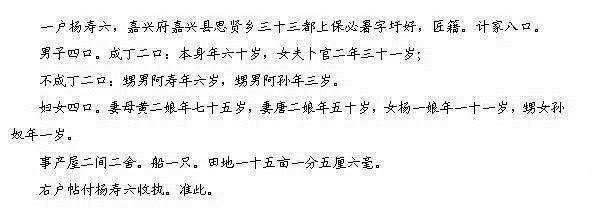 一户杨寿六，嘉兴府嘉兴县思贤乡三十三都上保必暑字圩好，匠籍。计家八口。
男子四口。成丁二口：本身年六十岁，女夫卜官二年三十一岁；
不成丁二口：甥男阿寿年六岁，甥男阿孙年三岁。
妇女四口。妻母黄二娘年七十五岁，妻唐二娘年五十岁，女杨一娘年一十一岁，甥女孙
奴年一岁。
事产屋二间二舍。船一只。田地一十五亩一分五厘六毫。
右户帖付杨寿六收执。准此。